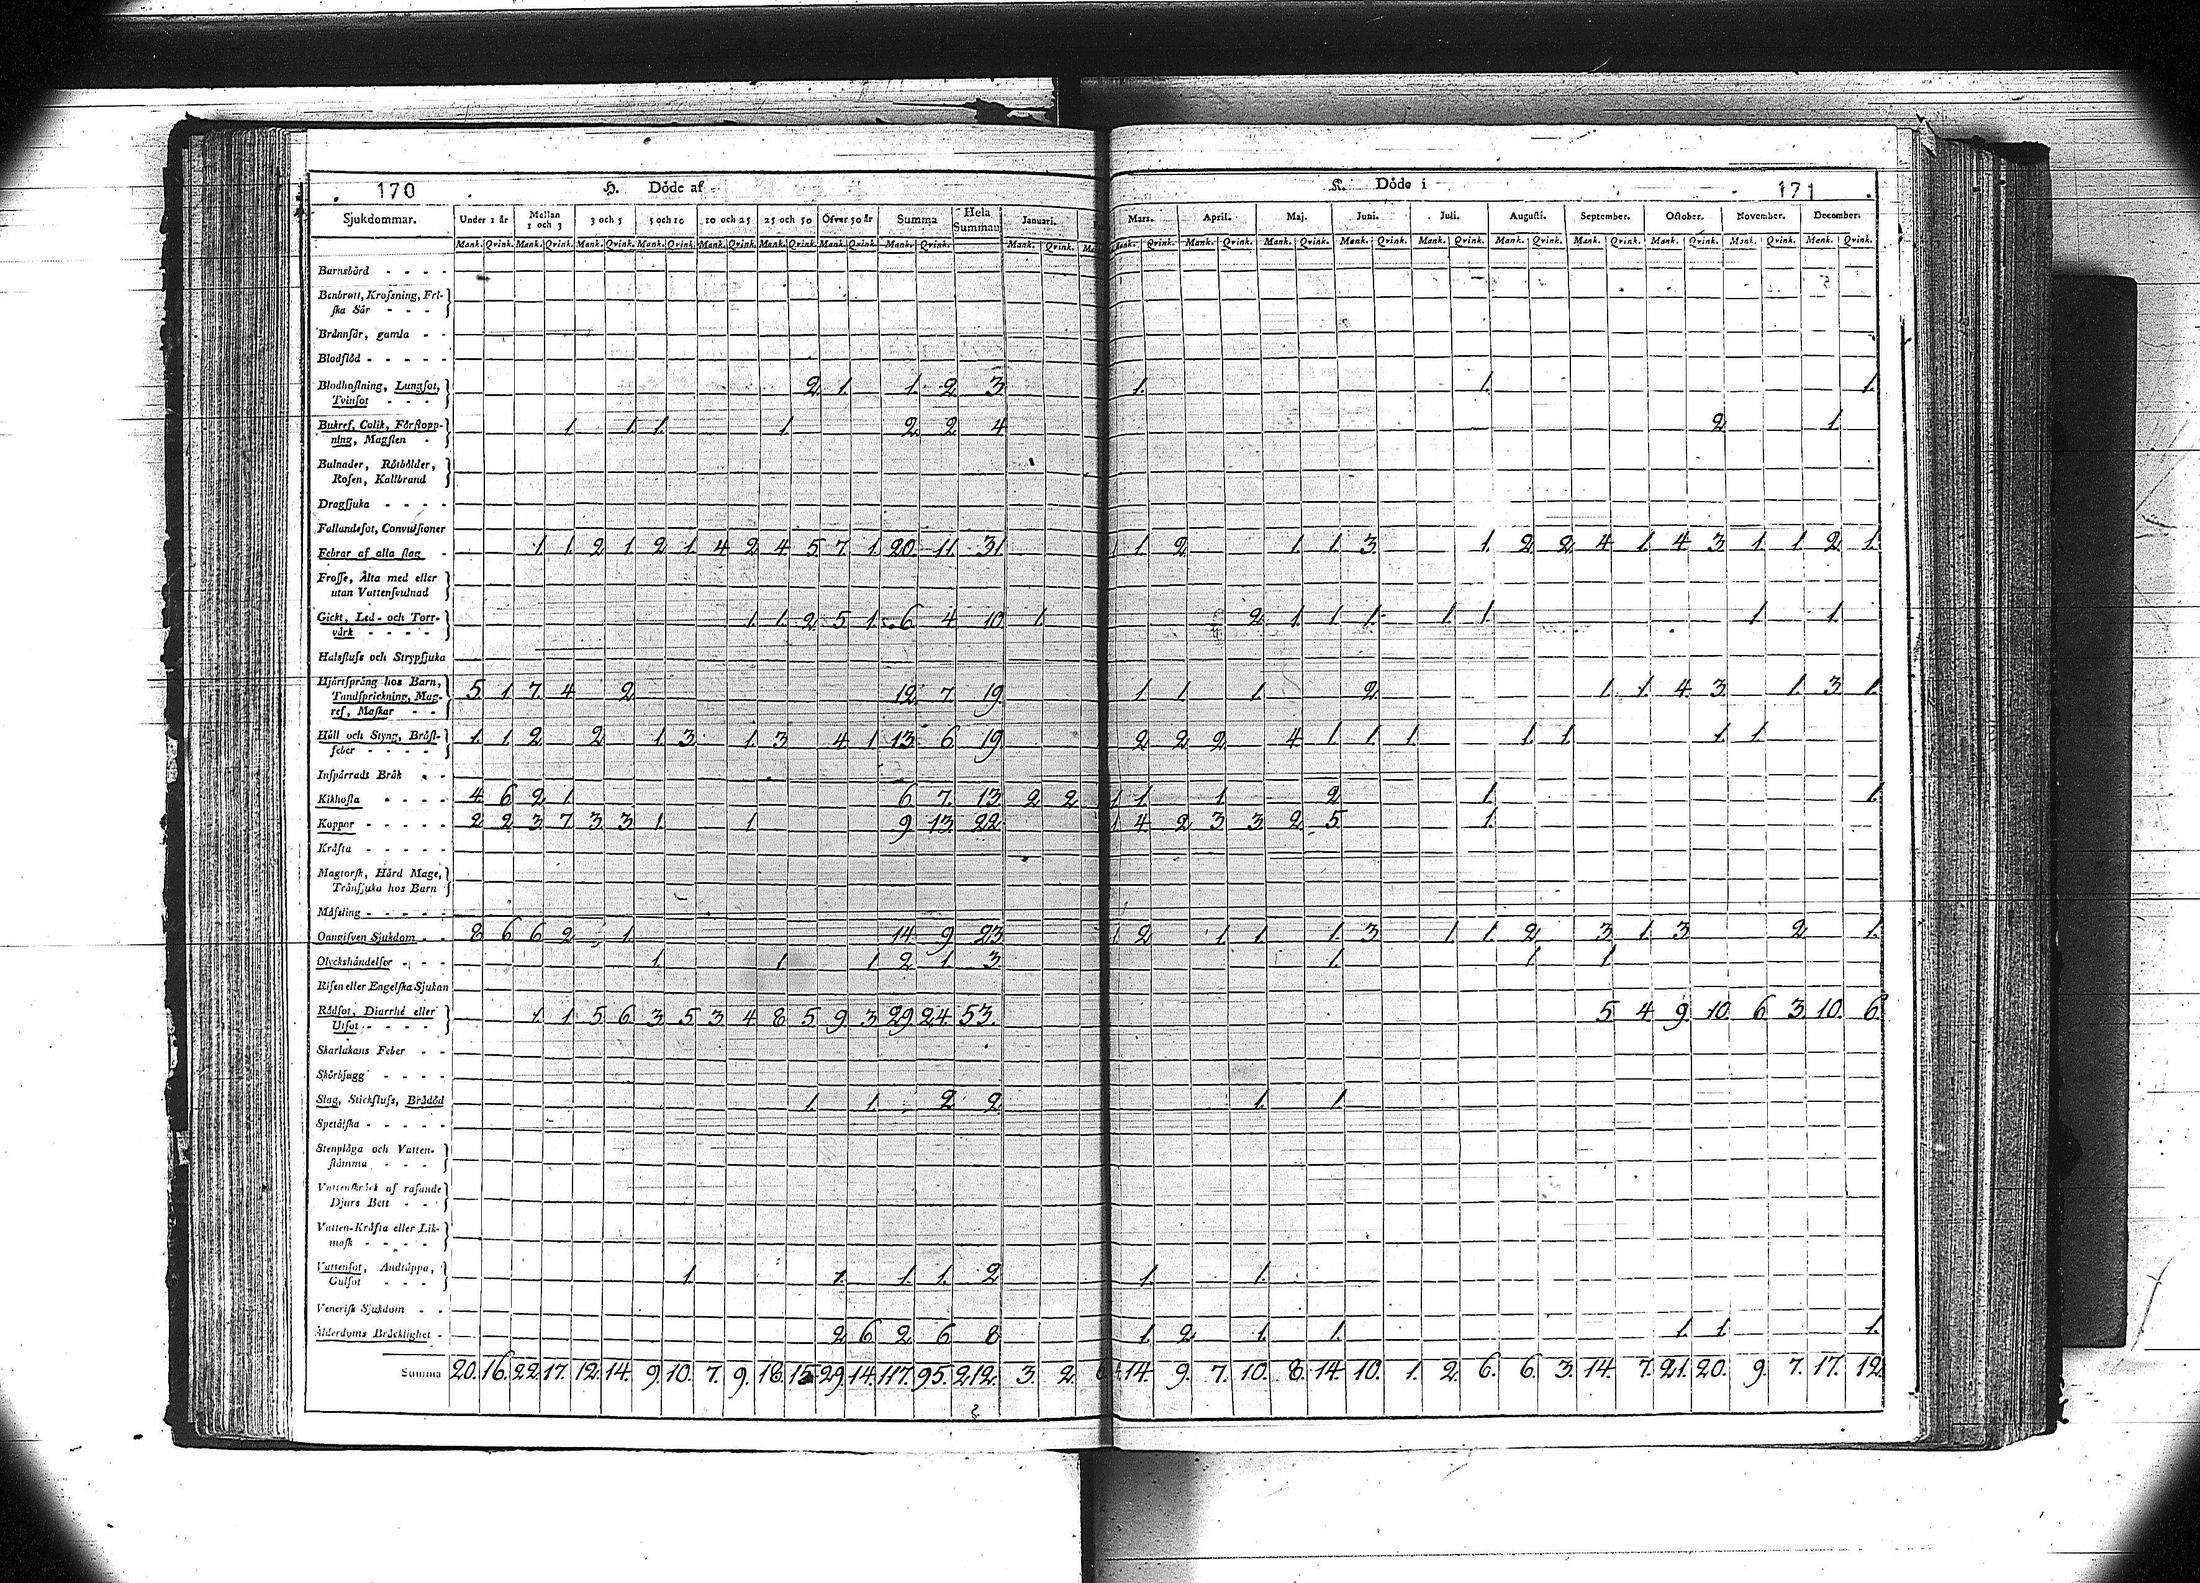 170 H. Döde af K. Döde i 171
Sjukdommar. Under 1 år Mellan 1 och 3 3 och 5 5 och 10 10 och 25 25 och 50 Öfver 50 år Summa Hela Summan Januari. Mars. April. Maj. Juni. Juli. Augusti. September. October. November. December.
Mank. Qvink. Mank. Qvink. Mank. Qvink. Mank. Qvink. Mank. Qvink. Mank. Qvink. Mank. Qvink. Mank. Qvink. Mank. Qvink. Mank. Qvink. Mank. Qvink. Mank. Qvink. Mank. Qvink. Mank. Qvink. Mank. Qvink. Mank. Qvink. Mank. Qvink. Mank. Qvink. Mank. Qvink.
Barnsbörd - - - -
Benbrott, Krossning, Fri-
ska Sår - - -
Brännsår, gamla - -
Blodflöd - - - - -
Blodhostning, Lungsot, 2 1. 1. 2 3 1. 1. 1.
Tvinsot - - -
Bukref, Colik, Förstopp- 1 1. 1. 1. 2 2 4 2 1.
ning, Magsten -
Bulnader, Rötbölder,
Rosen, Kallbrand
Dragsjuka - - - -
Fallandesot, Convulsioner
Febrar af alla slag - 1 1 2 1 2 1 4 2 4 5 7 1 20. 11 31 1 2 1 1 3 1 2 2 4 1. 4 3 1 1 2 1.
Frossa, Älta med eller
utan Vattensvulnad
Gickt, Led- och Torr- 1 1 2 5 1. 6 4 10 1. 2 1 1. 1. 1 1. 1 1.
värk - - - -
Halsfluss och Strypsjuka
Hjärtsprång hos Barn, 5 1 7 4 2 12. 7. 19. 1 1 1. 2. 1. 1. 4 3 1. 3 1.
Tandsprickning, Mag-
ref, Maskar - -
Håll och Styng, Bröst- 1. 1 2 2 1. 3 1. 3 4 1 13. 6 19 2 2 2 4 1. 1. 1. 1 1. 1. 1.
feber - - - -
Inspärradt Bråk - -
Kikhosta - - - - 4 6 2 1 6. 7. 13 2 2 1 1. 1 2 1. 1.
Koppor - - - - - 2 2 3 7 3 3 1. 1 9 13. 22 1 4 2 3 3. 2 5 1.
Kräfta - - - - -
Magtorsk, Hård Mage,
Tränsjuka hos Barn
Mässling - - - - -
Oangifven Sjukdom - - 8 6 6 2 1. 14. 9 23 1 2 1 1. 1. 3 1 1. 2 3 1. 3 2 1.
Olyckshändelser - - - 1. 1. 1 2 1. 3 1. 1 1
Risen eller Engelska Sjukan
Rödsot, Diarrhé eller 1. 1 5 6 3 5 3 4 8 5 9 3 29. 24. 53. 5 4 9 10. 6 3 10. 6.
Utsot - - - -
Skarlakans Feber - -
Skörbjugg - - - -
Slag, Stickfluss, Brådöd 1. 1. 2 2 1. 1.
Spetälska - - - - -
Stenplåga och Vatten-
stämma - - -
Vattenskräck af rasande
Djurs Bett - -
Vatten-Kräfta eller Lik-
mask - - - -
Vattensot, Andtäppa, 1. 1. 1. 1. 2 1. 1.
Gulsot - - -
Venerisk Sjukdom - -
Ålderdoms Bräcklighet - 2 6 2 6 8 1. 2 1. 1. 1. 1. 1.
Summa 20. 16. 22. 17. 12. 14. 9. 10. 7. 9. 18. 15 29. 14. 117. 95. 212. 3. 2. 14. 9. 7. 10. 8. 14. 10. 1. 2. 6. 6. 3. 14. 7. 21. 20. 9. 7. 17. 12.